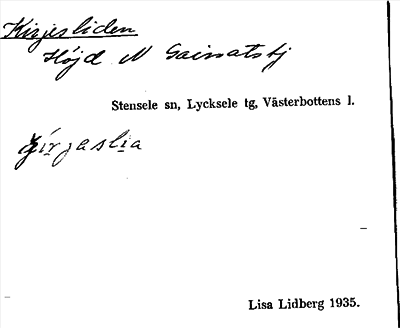 Kirjesliden
Höjd N Gainatsbj
Stensele sn, Lycksele tg, Västerbottens l.
ǯírjaslia
Lisa Lidberg 1935.